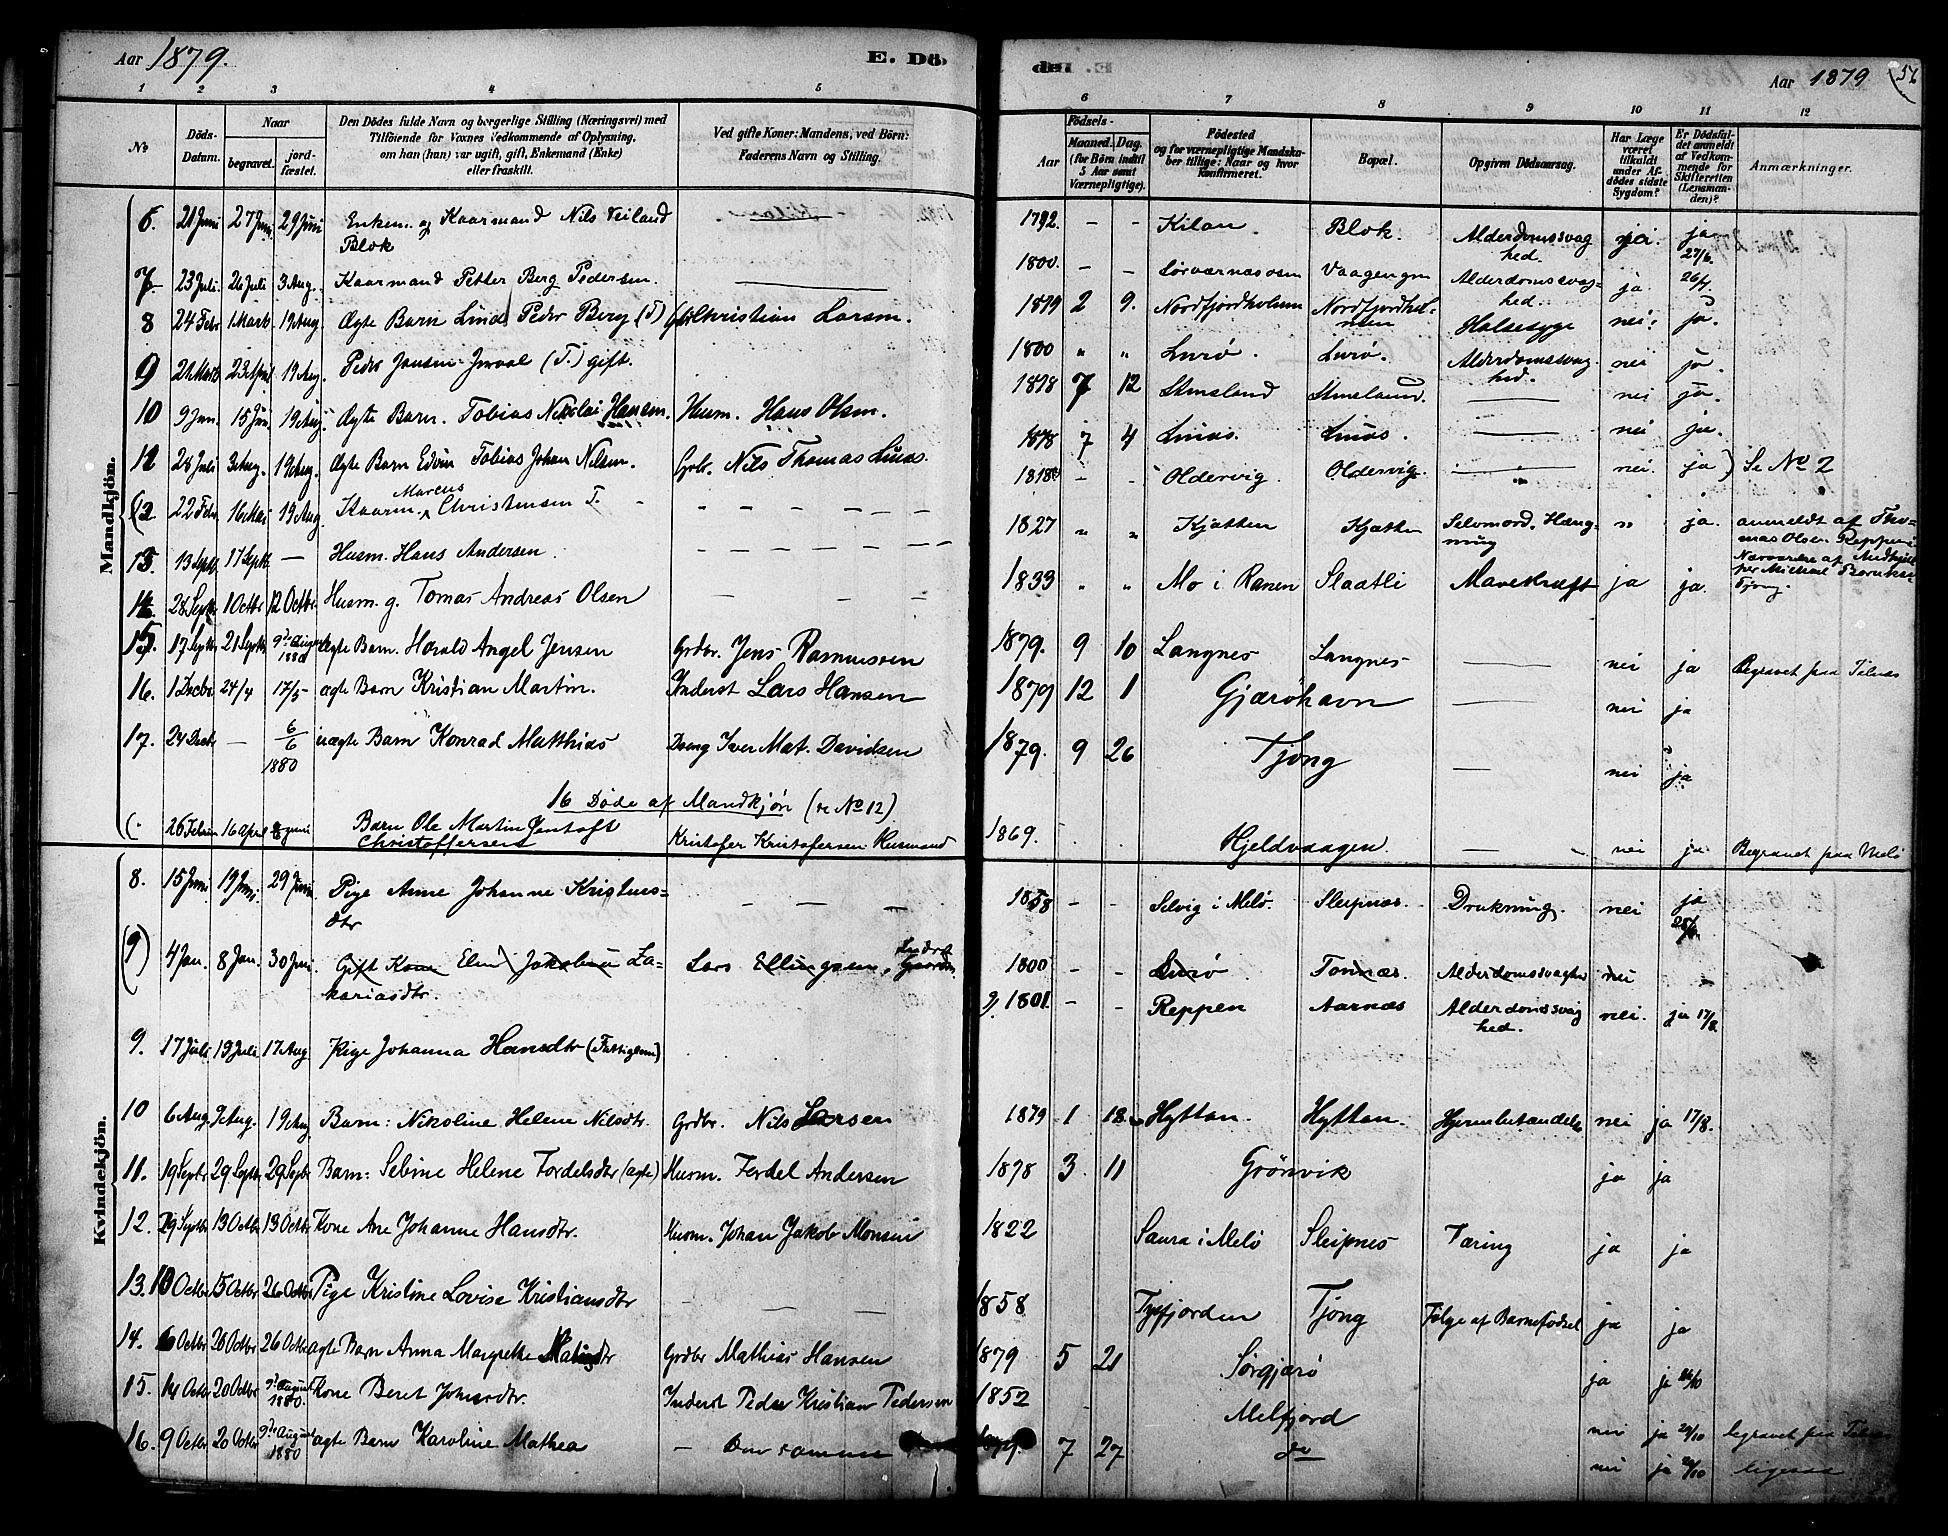 Aar 1879.
E. Dö-
de.
Aar 1879
1 2 3 4 5
6 7 8 9 10 11 12
No
Döds-Datum.
Naar
begravet.
jord-fæstet.
Den Dödes fulde Navn og borgerlige Stilling (Næringsvei) med
Tilföiende for Voxnes Vedkommende af Oplysning,
om han (hun) var ugift, gift, Enkemand (Enke)
eller fraskilt.
Ved gifte Koner: Mandens, ved Börn:
Faderens Navn og Stilling.
Födsels-
Aar
Maaned. Dag.
(for Börn indtil
5 Aar samt
Værnepligtige).
Födested
og for værnepligtige Mandska-
ber tillige: Naar og hvor
Konfirmeret.
Bopæl.
Opgiven Dödsaarsag.
Har Læge
været
tilkaldt
under Af-
dödes sidste
Sygdom?
Er Dödsfal-
det anmeldt
af Vedkom-
mende for
Skifteretten
(Lensman-
den)?
Anmærkninger.
Mandkjön.
6. 21 Juni 27 Juni 29 Juni Enkem. og Kaarmand Nils Veiland Blok 1792. - - Kilan. Blok. Alderdomssvaghed. nei. ja 27/6.
7 23 Juli 26 Juli 3 Aug. Kaarmand Petter Berg Pedersen. 1800. - - Sørværnæsosen Vaagengen Alderdomssvaghed. ja. 26/7.
8 24 Febr 1 Marts 19 Aug. Ægte Barn Lind Peder Berg (T) Christian Larsen. 1879 2 9. Nordfjordholmen Nordfjordholmen Halsesyge nei. ja.
9 21 Marts 23 April 19 Aug. Peder Jansen (T.) gift. 1800 " " Lurø. Lurø. Alderdomssvaghed. nei ja.
10 9 Jan. 15 Juni 19 Aug. Ægte Barn. Tobias Nikolai Hansen. Husm. Hans Olsen. 1878 7 12 Stensland Stensland. nei ja.
11 28 Juli 3 Aug. 19 Aug. Ægte Barn Edvin Tobias Johan Nilsen. Grbr. Nils Thomas 1878 7 4 nei ja.
(12 22 Febr 16 Mai 19 Aug. Kaarm. Marcus Christensen T. 1818 - - Oldervig. Oldervig. nei. ja) Se No 2
13. 13 Septb. 17 Septb. — Husm. Hans Andersen. 1827 " " Kjøtten Kjøtten Selvmord. Hængning " ja. anmeldt af Thomas Olsen Reppen
14 28 Septb. 1 Octbr 12 Octbr. Husm. g. Tomas Andreas Olsen 1833 " " Mo i Ranen Slaatli Mavekræft ja ja.
15. 17 Septb. 21 Septb. 9de August 1880 ægte Barn. Harald Angel Jensen Grdbr. Jens Rasmussen 1879. 9 10 Langnes Langnes nei ja Begravet paa Telnes
16. 1 Decbr 24/4 17/5- ægte Barn Kristian Martin. Inderst Lars Hansen 1879 12 1 Gjærøhavn nei ja
17. 24 Decbr — 6/6 1880 uægte Barn Konrad Matthias Dreng Iver Mat. Davidsen 1879. 9 26 Tjong nei ja
16 Døde af Mandkjøn (se No 12)
(. 26 Februar 16 April 8 Juni Barn Ole Martin Jentoft Christoffersen Kristofer Kristofersen Husmand 1869. Hjeldvaagen. nei ja Begravet paa Melø
Kvindekjön.
8. 15 Juni 19 Juni. 29 Juni Pige Anne Johanne Kristensdtr 1858 - - Selvig i Melø. Sleipnæs. Drukning. nei ja
(9) 4 Jan. 8 Jan. 30 Juni. Gift Kone Elen Jakobine Zakariasdtr. Lars Ellingsen, Inderst 1800 - - Lurø Tonnæs. Alderdomssvaghed nei -
9. 17 Juli 19 Juli 17 Aug Pige Johanna Hansdtr (Fattiglem) 9. 1801. - - Reppen Aarnæs Alderdomssvaghed. nei. ja 17/8.
10 6 Aug. 9 Aug. 19 Aug Barn: Nikoline Helene Nilsdtr. Grdbr. Nils Larsen 1879 1 18. Hyttan. Hyttan. Hjernebetændelse nei ja 17/8.
11. 19 Septbr 29 Septbr 29 Septbr Barn: Sebine Helene Fordelsdtr (ægte) Husm. Fordel Andersen 1878 3. 11 Grønvik ja ja
12. 29 Septbr 13 Octbr 13 Octbr Kone Ane Johanne Hansdtr. Husm. Johan Jakob Monsen 1822 Saura i Melø Sleipnes Tæring ja ja
13. 10 Octbr 15 Octbr 26 Octbr Pige Kristine Lovise Kristiansdtr 1858 Tysfjorden Tjong Følge af Barnefødsel ja ja
14. 6 Octbr 20 Octbr 26 Octbr ægte Barn Anna Margrethe Grdbr Mathias Hansen 1879 5 21 Sørgjærø ja ja
15. 14 Octbr 20 Octbr 9de August 1880. Kone Beret Johansdtr. Inderst Peder Kristian Pedersen 1852 Melfjord nei ja 20/10 begravet paa Telnes
16. 9 Octbr 20 Octbr 9de August 1880 ægte Barn Karoline Mathea — Den samme 1879. 7 27 do nei ja 20/10 ligesaa